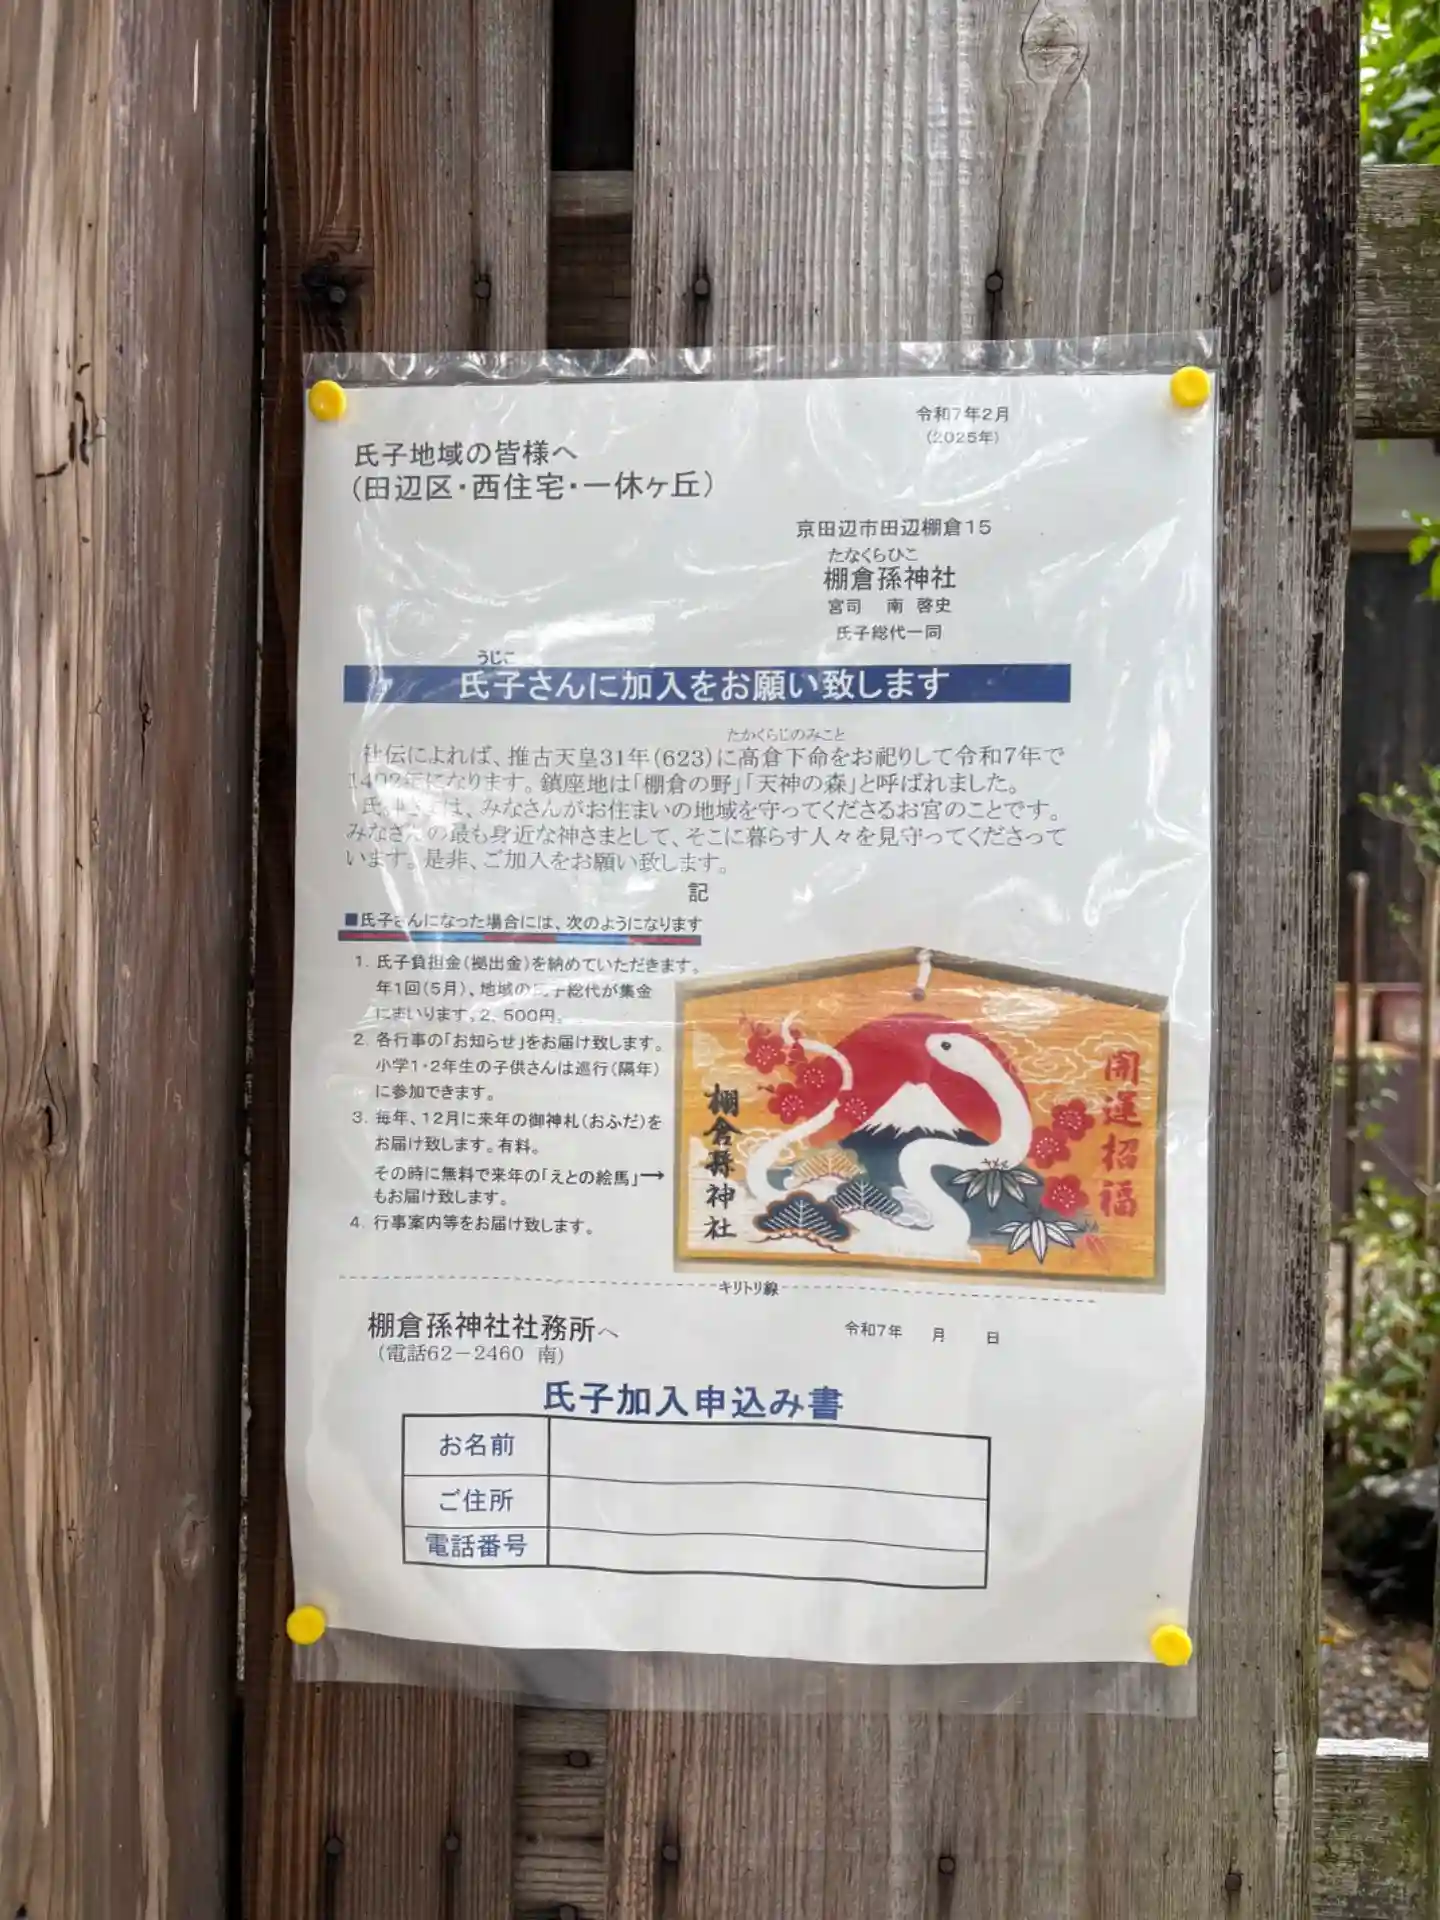 令和7年2月
(2025年)
氏子地域の皆様へ
(田辺区・西住宅・一休ヶ丘)
京田辺市田辺棚倉15
たなくらひこ
棚倉孫神社
宮司 南 啓史
氏子総代一同
うじこ
氏子さんに加入をお願い致します
たかくらじのみこと
社伝によれば、推古天皇31年(623)に高倉下命をお祀りして令和7年で
1402年になります。鎮座地は「棚倉の野」「天神の森」と呼ばれました。
氏神さまは、みなさんがお住まいの地域を守ってくださるお宮のことです。
みなさんの最も身近な神さまとして、そこに暮らす人々を見守ってくださって
います。是非、ご加入をお願い致します。
記
■氏子さんになった場合には、次のようになります
1. 氏子負担金(拠出金)を納めていただきます。
年1回(5月)、地域の氏子総代が集金
にまいります。2, 500円。
2. 各行事の「お知らせ」をお届け致します。
小学1・2年生の子供さんは巡行(隔年)
に参加できます。
3. 毎年、12月に来年の御神札(おふだ)を
お届け致します。有料。
その時に無料で来年の「えとの絵馬」→
もお届け致します。
4. 行事案内等をお届け致します。
開運招福
棚倉孫神社
キリトリ線
棚倉孫神社社務所へ
(電話62-2460 南)
令和7年 月 日
氏子加入申込み書
お名前
ご住所
電話番号